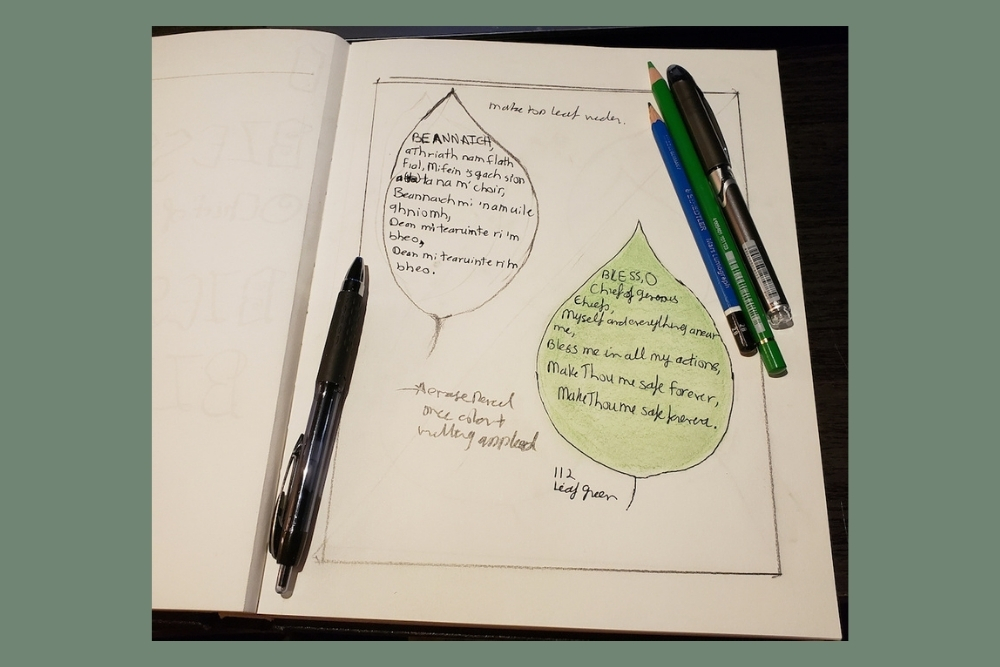 make top leaf wider.
BEANNAICH,
a Thriath nam flath
fial, Mi fein 's gach sion
ta na m' choir,
Beannaich mi 'nam uile
ghniomh,
Dean mi tearuinte ri 'm
bheo,
Dean mi tearuinte ri 'm
bheo.
BLESS, O
Chief of generous
Chiefs,
Myself and everything anear
me,
Bless me in all my actions,
Make Thou me safe forever,
Make Thou me safe forever.
Erase Pencil
once color +
applied
112
Leaf green
STAEDTLER